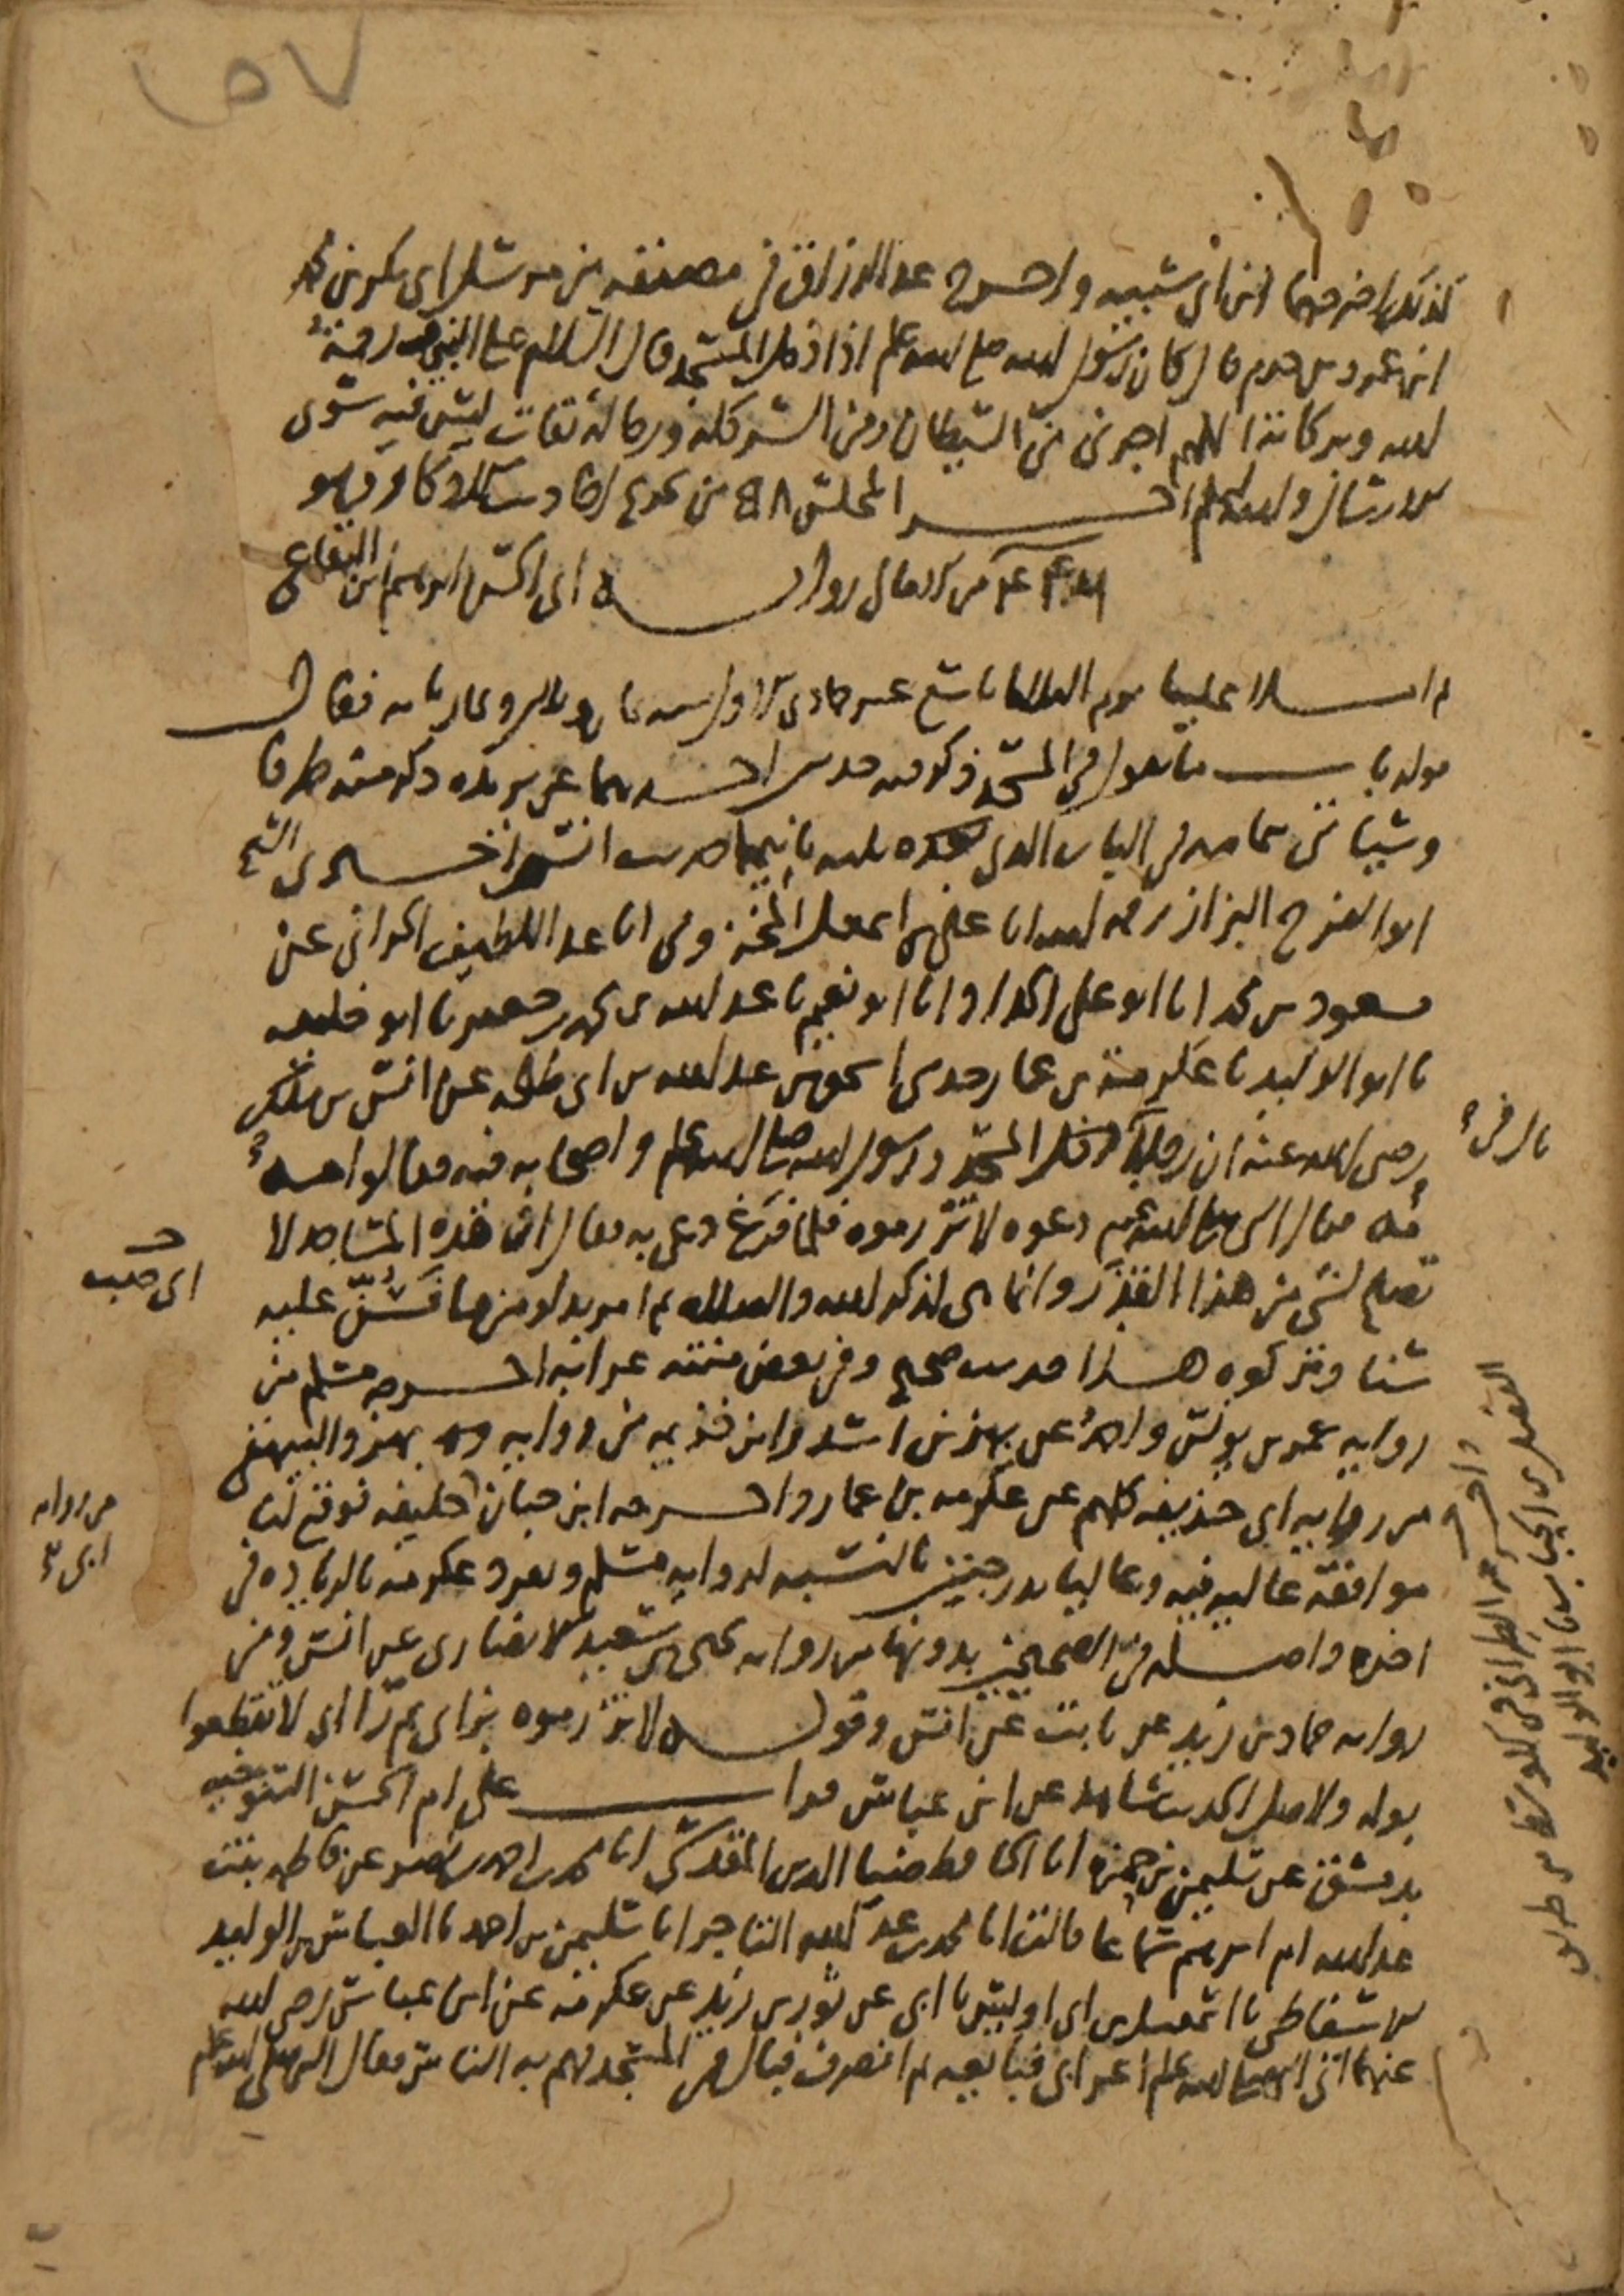 ٥٧
كذلك اخرجهما ابن ابي شيبه واخرج عبد الرزاق في مصنفه من مرسل ابي بكر بن محمد
ابن عمرو بن حزم قال كان رسول الله صلى الله عليه وسلم اذا دخل المسجد قال السلام على النبي ورحمة
الله وبركاته اللهم اجرني من الشيطان ومن الشر كله ورجاله ثقات ليس فيه سوى
الارسال والله اعلم اخر المجلس من تخريج احاديث الاذكار وهو
من الامالي رواية ابي الحسن ابراهيم ابن البقاعي
ثم املا علينا يوم الثلاثا تاسع عشر جمادى الاولى سنه وثمان مايه فقال
قوله باب ما يقول في المسجد ذكر فيه حديثين احدهما عن بريده ذكر منه طرفا
وسياتي تمامه في الباب الذي بعده يليه ثانيهما حديث انس اخبرني الشيخ
ابو الفرج البزاز رحمه الله انا علي بن اسمعيل المخزومي انا عبد اللطيف الحراني عن
مسعود بن محمد انا ابو علي الحداد انا ابو نعيم نا عبد الله بن محمد بن جعفر نا ابو خليفه
نا ابو الوليد نا عكرمة بن عمار حدثني اسحق بن عبد الله بن ابي طلحه عن انس بن ملك
رضي الله عنه ان رجلا دخل المسجد ورسول الله صلى الله عليه وسلم واصحابه فيه فبال فقالوا مه
مه فقال النبي صلى الله عليه وسلم دعوه لا تزرموه فلما فرغ دعى به فقال ان هذه المساجد لا
تصلح لشي من هذا القذر وانما هي لذكر الله والصلاه ثم امر بدلو من ما فشن عليه
شنا وتركوه هذا حديث صحيح وفي بعض متنه غرابه اخرجه مسلم من
رواية عمر بن يونس واحمد عن بهز بن اسد وابن خزيمه من رواية بهز والبيهقي
من رواية ابي حذيفه كلهم عن عكرمه بن عمار واخرجه ابن حبان خليفه فوقع لنا
موافقة عاليه فيه وعاليا بدرجتين بالنسبه لرواية مسلم وتفرد عكرمه بالزياده في
اخره واصله في الصحيحين بدونها من رواية يحيى بن سعيد الانصاري عن انس ومن
رواية حماد بن زيد عن ثابت عن انس وقوله لا تزرموه بزاى ثم را اى لا تقطعوا
بوله ولاصل الحديث شاهد عن ابن عباس قرات على ام الحسن التنوخيه
بدمشق عن سليمن بن حمزه انا الحافظ ضيا الدين المقدسي انا محمد بن احمد بن نصر عن فاطمه بنت
عبد الله ام ابرهيم سماعا قالت انا محمد بن عبد الله التاجر انا سليمن بن احمد نا العباس بن الوليد
الاسفاطي نا اسمعيل بن ابي اويس نا ابي عن ثور بن زيد عن عكرمه عن ابن عباس رضي الله
عنهما اتى النبي صلى الله عليه وسلم اعرابي فبايعه ثم انصرف فبال في المسجد فهم به الناس فقال النبي صلى الله عليه وسلم
اى صب
من رواية
ابي
واخرجه الطبراني في الاوسط من طريق
الفضل بن الحباب نا ابو الوليد